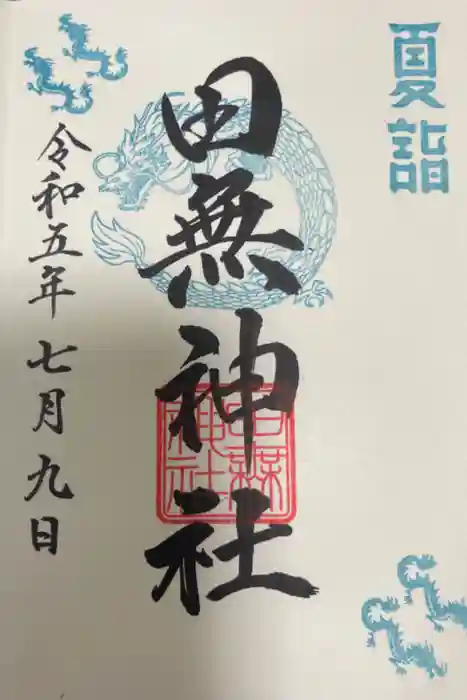 夏詣
田無神社
田無神社
令和五年七月九日